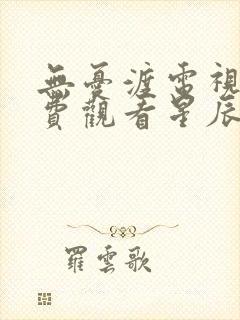 無憂渡電視
費觀看星辰
羅雲歌